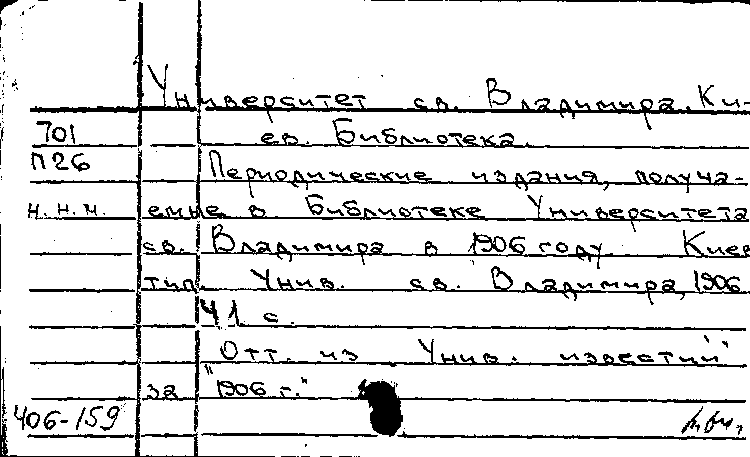 Университет св. Владимира. Ки-
701 ев. Библиотека.
П26 Периодические издания, получа-
н.н.н. емые в Библиотеке Университета
св. Владимира в 1906 году. Киев
тип. Унив. св. Владимира, 1906
41 с.
Отт. из Унив. известий"
за "1906 г."
406-159